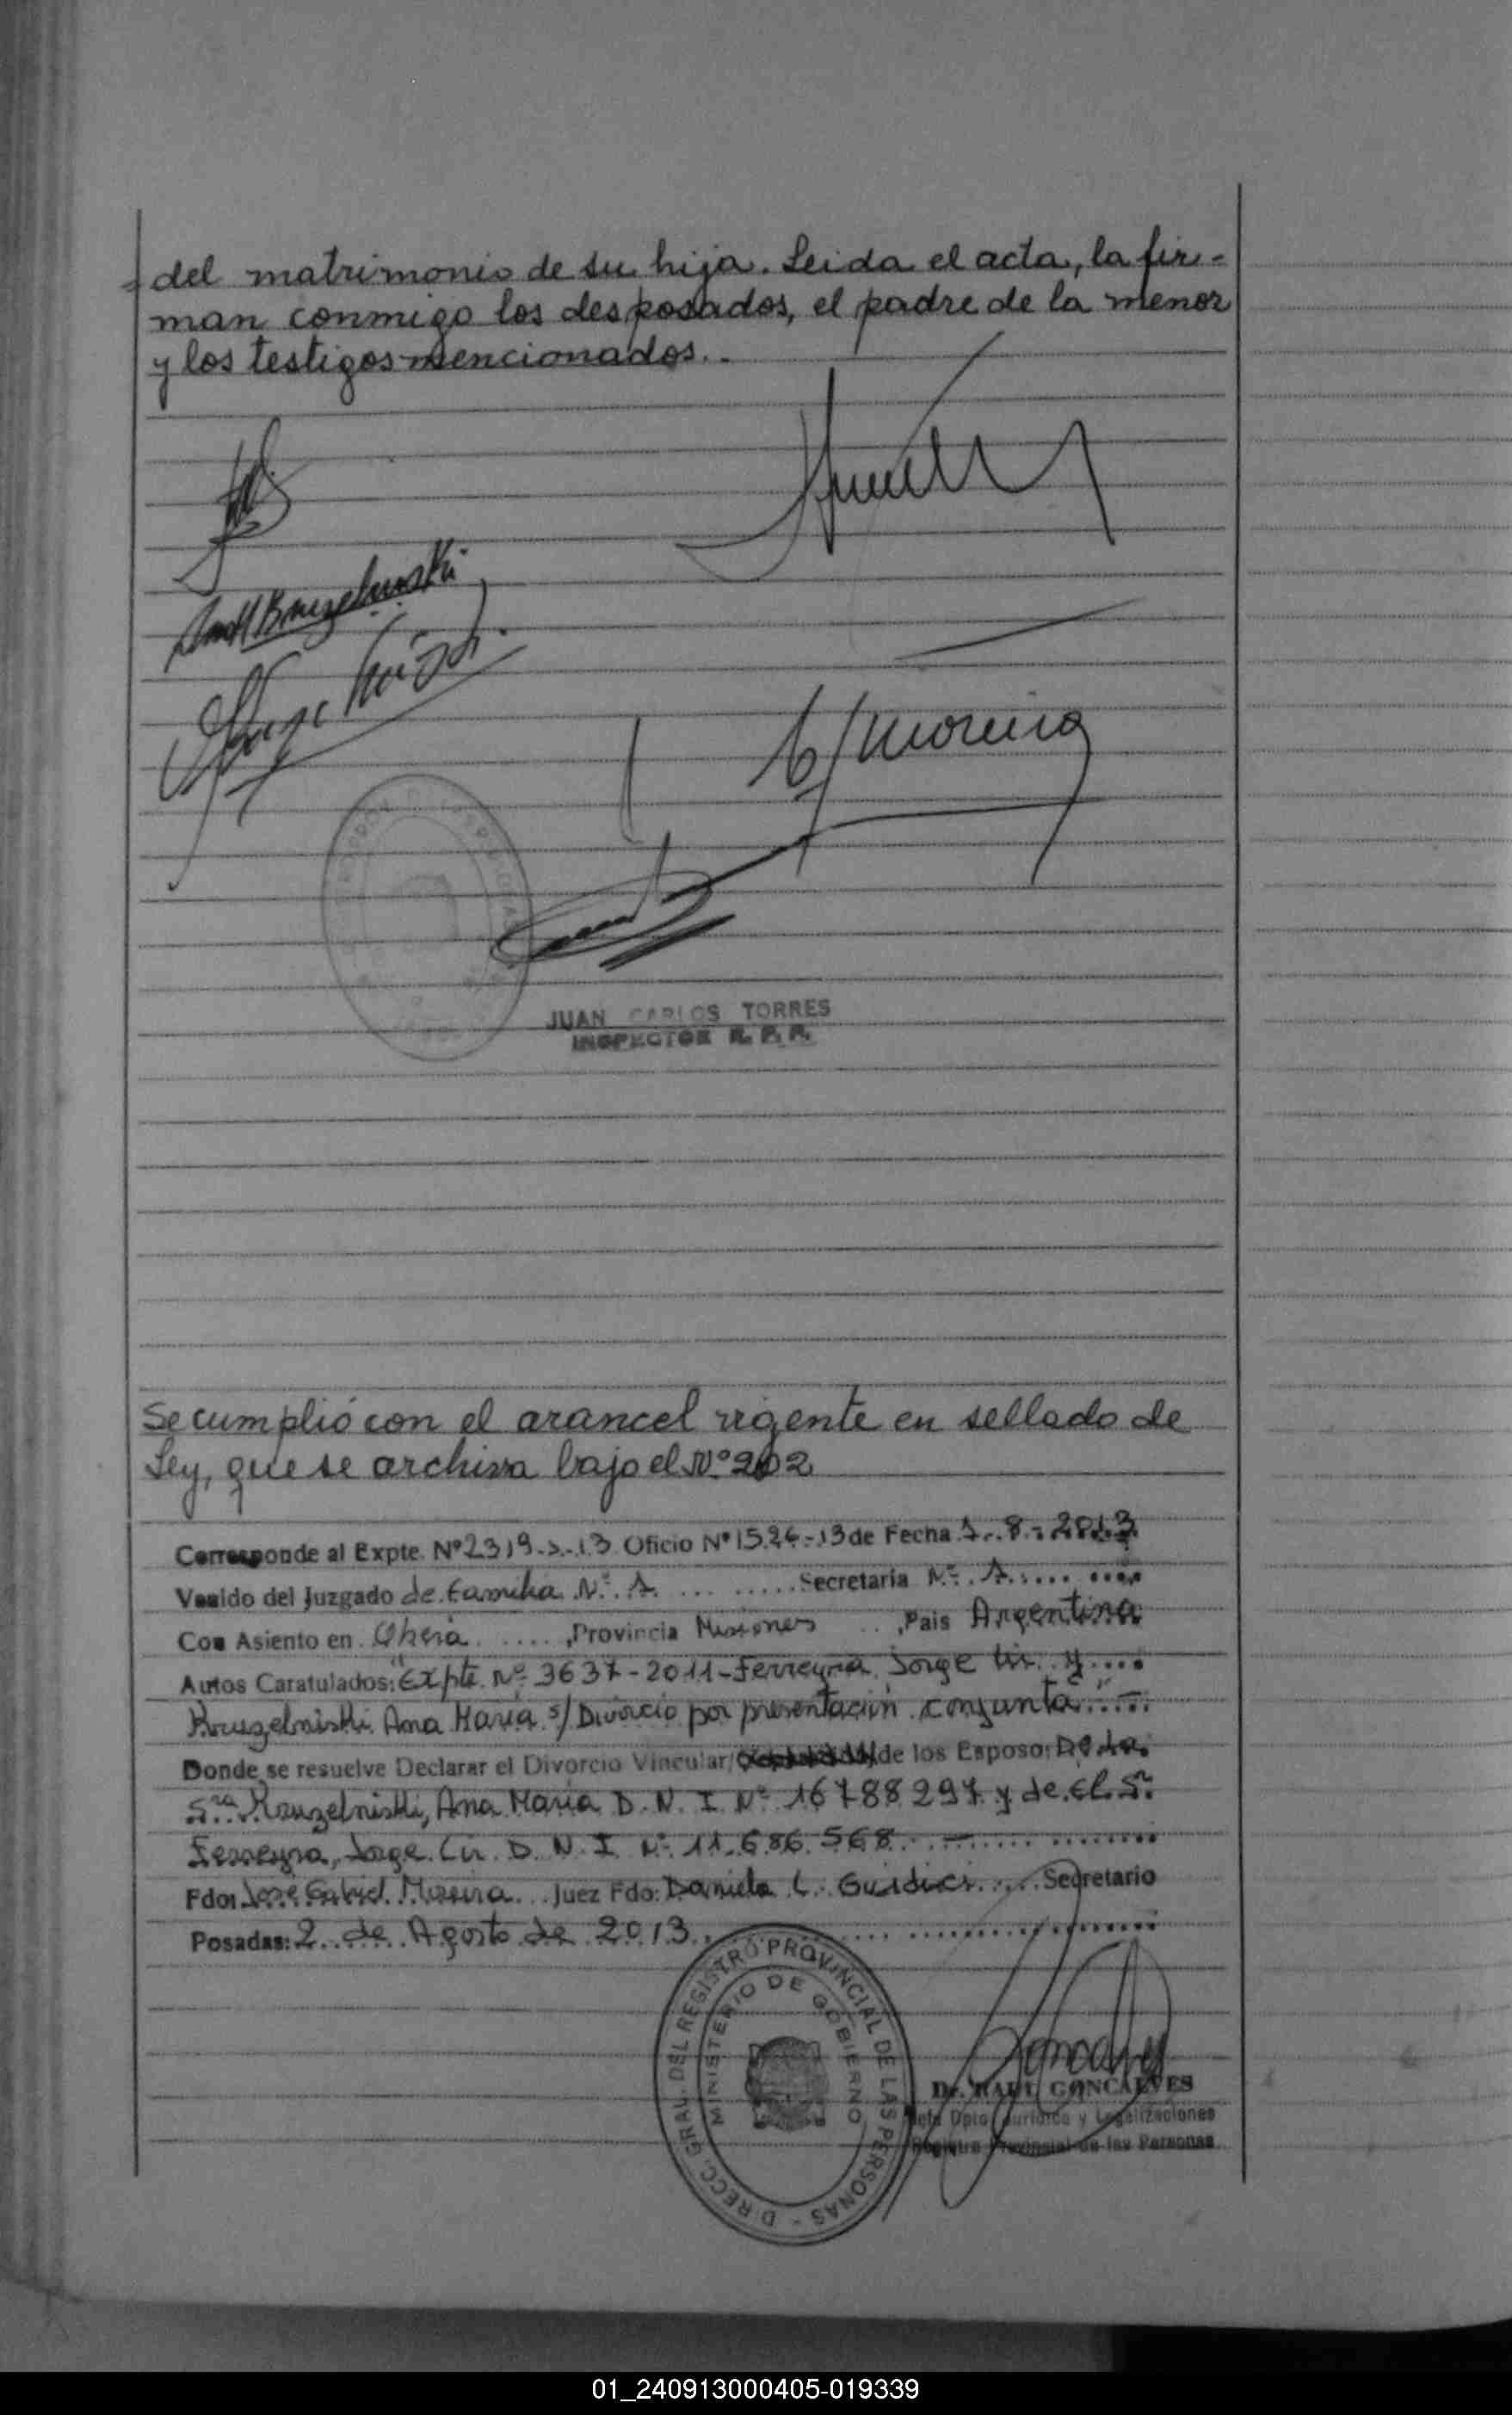 del matrimonio de su hija. Leida el acta, la fir-
man conmigo los desposados, el padre de la menor
y los testigos mencionados..-
Moreira
JUAN CARLOS TORRES
INSPECTOR R. P. P.
Se cumplió con el arancel vigente en sellado de
Ley, que se archiva bajo el Nº 202
Corresponde al Expte. Nº 2319-S-13 Oficio Nº 1526-13 de Fecha 1-8-2013
Venido del Juzgado de Familia Nº 1 Secretaría Nº 1
Con Asiento en Oberá, Provincia Misiones, Pais Argentina
Autos Caratulados: "Expte. Nº 3637-2011-Ferreyra, Jorge Lir y
Kruzelniski Ana María s/ Divorcio por presentación conjunta"
Donde se resuelve Declarar el Divorcio Vincular/ de los Esposo: De la
Sra Kruzelniski, Ana María D. N. I. Nº 16788297 y de El Sr
Ferreyra, Jorge Lir D. N. I Nº 11.686.568
Fdo: José Gabriel Moreira Juez Fdo: Daniela L. Guidici Secretario
Posadas: 2 de Agosto de 2013
DIRECC. GRAL. DEL REGISTRO PROVINCIAL DE LAS PERSONAS -
MINISTERIO DE GOBIERNO
Dr. RAUL GONCALVES
Jefe Dpto Jurídico y Legalizaciones
Registro Provincial de las Personas
01_240913000405-019339